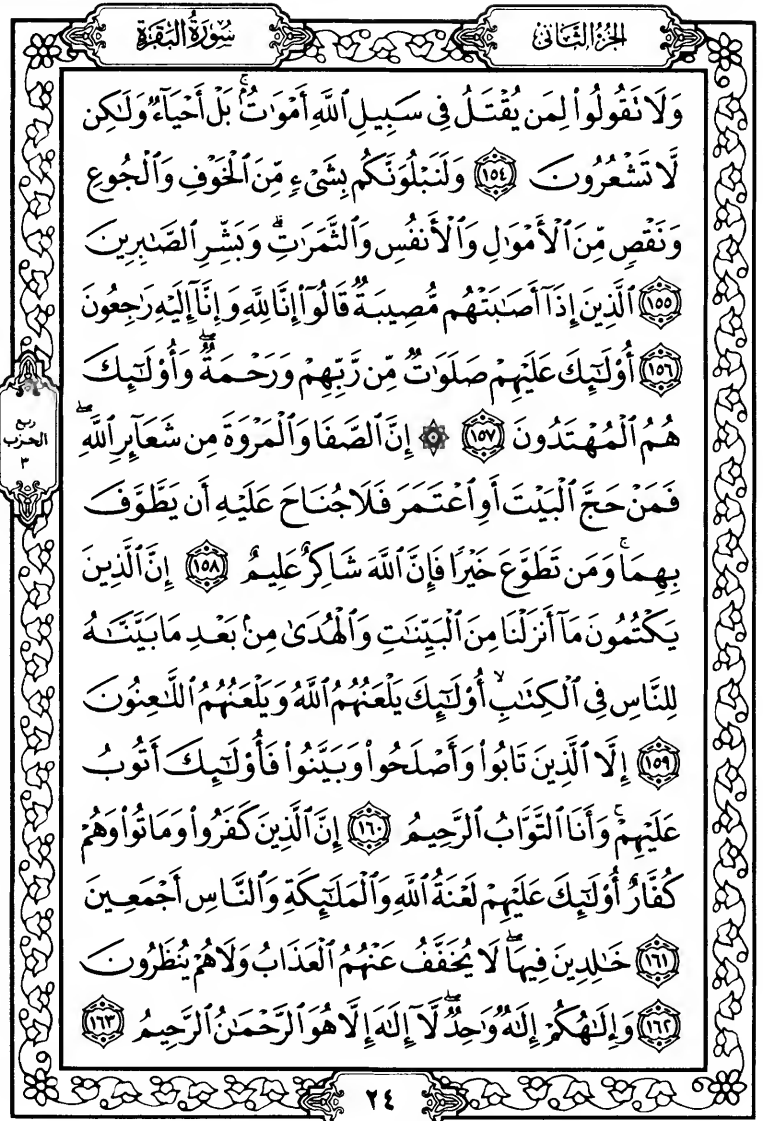 سُورَةُ الْبَقَرَةِ
الجُزْءُ الثَّانِى
وَلَا تَقُولُوا۟ لِمَن يُقْتَلُ فِى سَبِيلِ ٱللَّهِ أَمْوَٰتٌۢ ۚ بَلْ أَحْيَآءٌ وَلَٰكِن
لَّا تَشْعُرُونَ ١٥٤ وَلَنَبْلُوَنَّكُم بِشَىْءٍ مِّنَ ٱلْخَوْفِ وَٱلْجُوعِ
وَنَقْصٍ مِّنَ ٱلْأَمْوَٰلِ وَٱلْأَنفُسِ وَٱلثَّمَرَٰتِ ۗ وَبَشِّرِ ٱلصَّٰبِرِينَ
١٥٥ ٱلَّذِينَ إِذَآ أَصَٰبَتْهُم مُّصِيبَةٌ قَالُوٓا۟ إِنَّا لِلَّهِ وَإِنَّآ إِلَيْهِ رَٰجِعُونَ
١٥٦ أُو۟لَٰٓئِكَ عَلَيْهِمْ صَلَوَٰتٌ مِّن رَّبِّهِمْ وَرَحْمَةٌ ۖ وَأُو۟لَٰٓئِكَ
هُمُ ٱلْمُهْتَدُونَ ١٥٧ ۞ إِنَّ ٱلصَّفَا وَٱلْمَرْوَةَ مِن شَعَآئِرِ ٱللَّهِ ۖ
فَمَنْ حَجَّ ٱلْبَيْتَ أَوِ ٱعْتَمَرَ فَلَا جُنَاحَ عَلَيْهِ أَن يَطَّوَّفَ
بِهِمَا ۚ وَمَن تَطَوَّعَ خَيْرًا فَإِنَّ ٱللَّهَ شَاكِرٌ عَلِيمٌ ١٥٨ إِنَّ ٱلَّذِينَ
يَكْتُمُونَ مَآ أَنزَلْنَا مِنَ ٱلْبَيِّنَٰتِ وَٱلْهُدَىٰ مِنۢ بَعْدِ مَا بَيَّنَّٰهُ
لِلنَّاسِ فِى ٱلْكِتَٰبِ ۙ أُو۟لَٰٓئِكَ يَلْعَنُهُمُ ٱللَّهُ وَيَلْعَنُهُمُ ٱللَّٰعِنُونَ
١٥٩ إِلَّا ٱلَّذِينَ تَابُوا۟ وَأَصْلَحُوا۟ وَبَيَّنُوا۟ فَأُو۟لَٰٓئِكَ أَتُوبُ
عَلَيْهِمْ ۚ وَأَنَا ٱلتَّوَّابُ ٱلرَّحِيمُ ١٦٠ إِنَّ ٱلَّذِينَ كَفَرُوا۟ وَمَاتُوا۟ وَهُمْ
كُفَّارٌ أُو۟لَٰٓئِكَ عَلَيْهِمْ لَعْنَةُ ٱللَّهِ وَٱلْمَلَٰٓئِكَةِ وَٱلنَّاسِ أَجْمَعِينَ
١٦١ خَٰلِدِينَ فِيهَا ۖ لَا يُخَفَّفُ عَنْهُمُ ٱلْعَذَابُ وَلَا هُمْ يُنظَرُونَ
١٦٢ وَإِلَٰهُكُمْ إِلَٰهٌ وَٰحِدٌ ۖ لَّآ إِلَٰهَ إِلَّا هُوَ ٱلرَّحْمَٰنُ ٱلرَّحِيمُ ١٦٣
ربع
الحزب
٣
٢٤